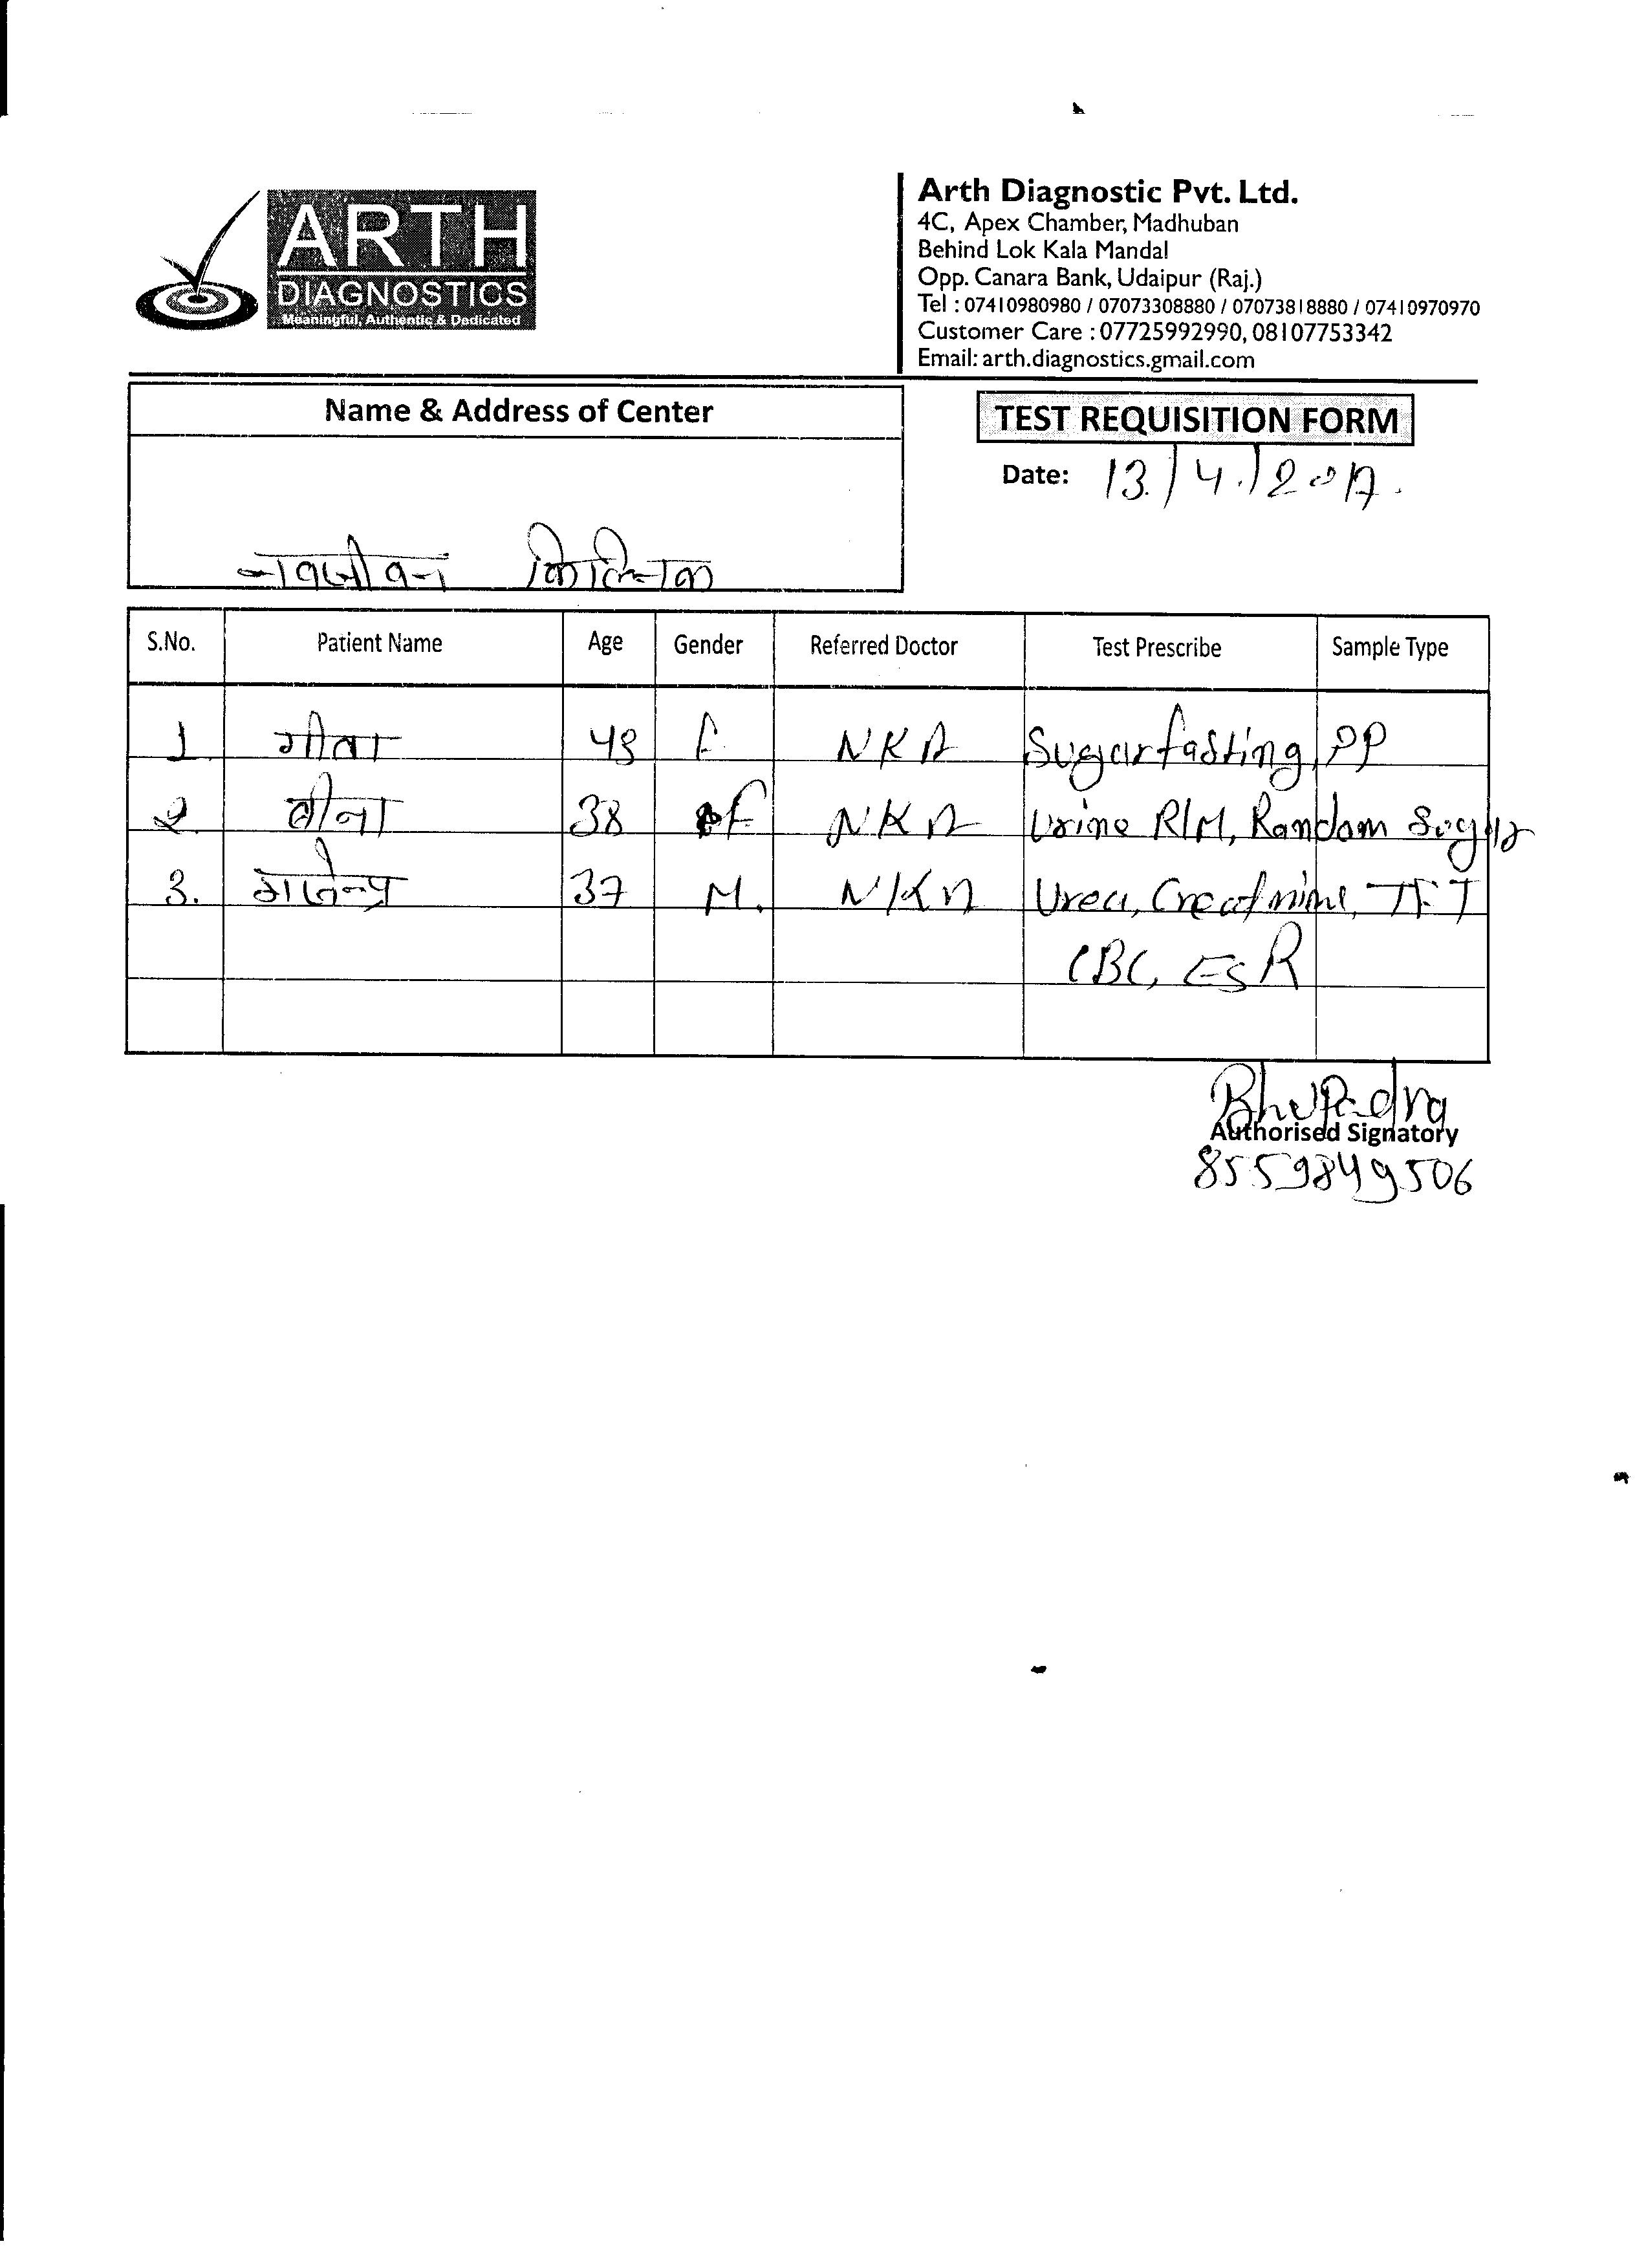 ARTH
DIAGNOSTICS
Meaningful, Authentic & Dedicated
Arth Diagnostic Pvt. Ltd.
4C, Apex Chamber, Madhuban
Behind Lok Kala Mandal
Opp. Canara Bank, Udaipur (Raj.)
Tel : 07410980980 / 07073308880 / 07073818880 / 07410970970
Customer Care : 07725992990, 08107753342
Email: arth.diagnostics.gmail.com
Name & Address of Center
नवजीवन क्लिनिक
TEST REQUISITION FORM
Date: 13/4/2017.
S.No. Patient Name Age Gender Referred Doctor Test Prescribe Sample Type
1 गीता 48 F NKA Sugar fasting, PP
2. वीना 38 F NKA Urine R/M, Random Sugar
3. गजेन्द्र 37 M. NKA Urea, Creatnine, TFT
CBC, ESR
Bhupendra
Authorised Signatory
8559849506